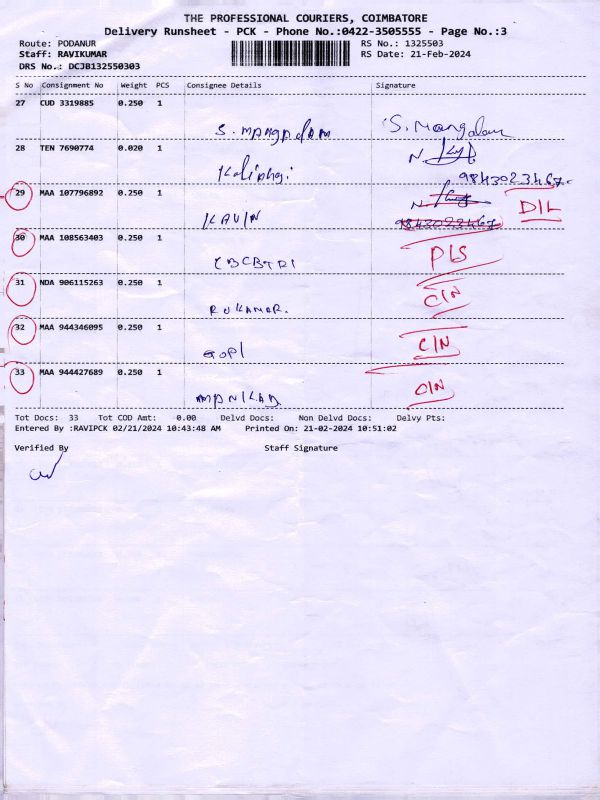 THE PROFESSIONAL COURIERS, COIMBATORE
Delivery Runsheet - PCK - Phone No.:0422-3505555 - Page No.:3
Route: PODANUR RS No.: 1325503
Staff: RAVIKUMAR RS Date: 21-Feb-2024
DRS No.: DCJB132550303
S No Consignment No Weight PCS Consignee Details Signature
27 CUD 3319885 0.250 1
S. MANGALAM S. Mangalam
28 TEN 7690774 0.020 1
N
9843023467
29 MAA 107796892 0.250 1
KAVIN N D/L
9843023467
30 MAA 108563403 0.250 1
P/S
31 NDA 906115263 0.250 1
C/N
32 MAA 944346095 0.250 1
GOPI C/N
33 MAA 944427689 0.250 1
C/N
Tot Docs: 33 Tot COD Amt: 0.00 Delvd Docs: Non Delvd Docs: Delvy Pts:
Entered By :RAVIPCK 02/21/2024 10:43:48 AM Printed On: 21-02-2024 10:51:02
Verified By Staff Signature